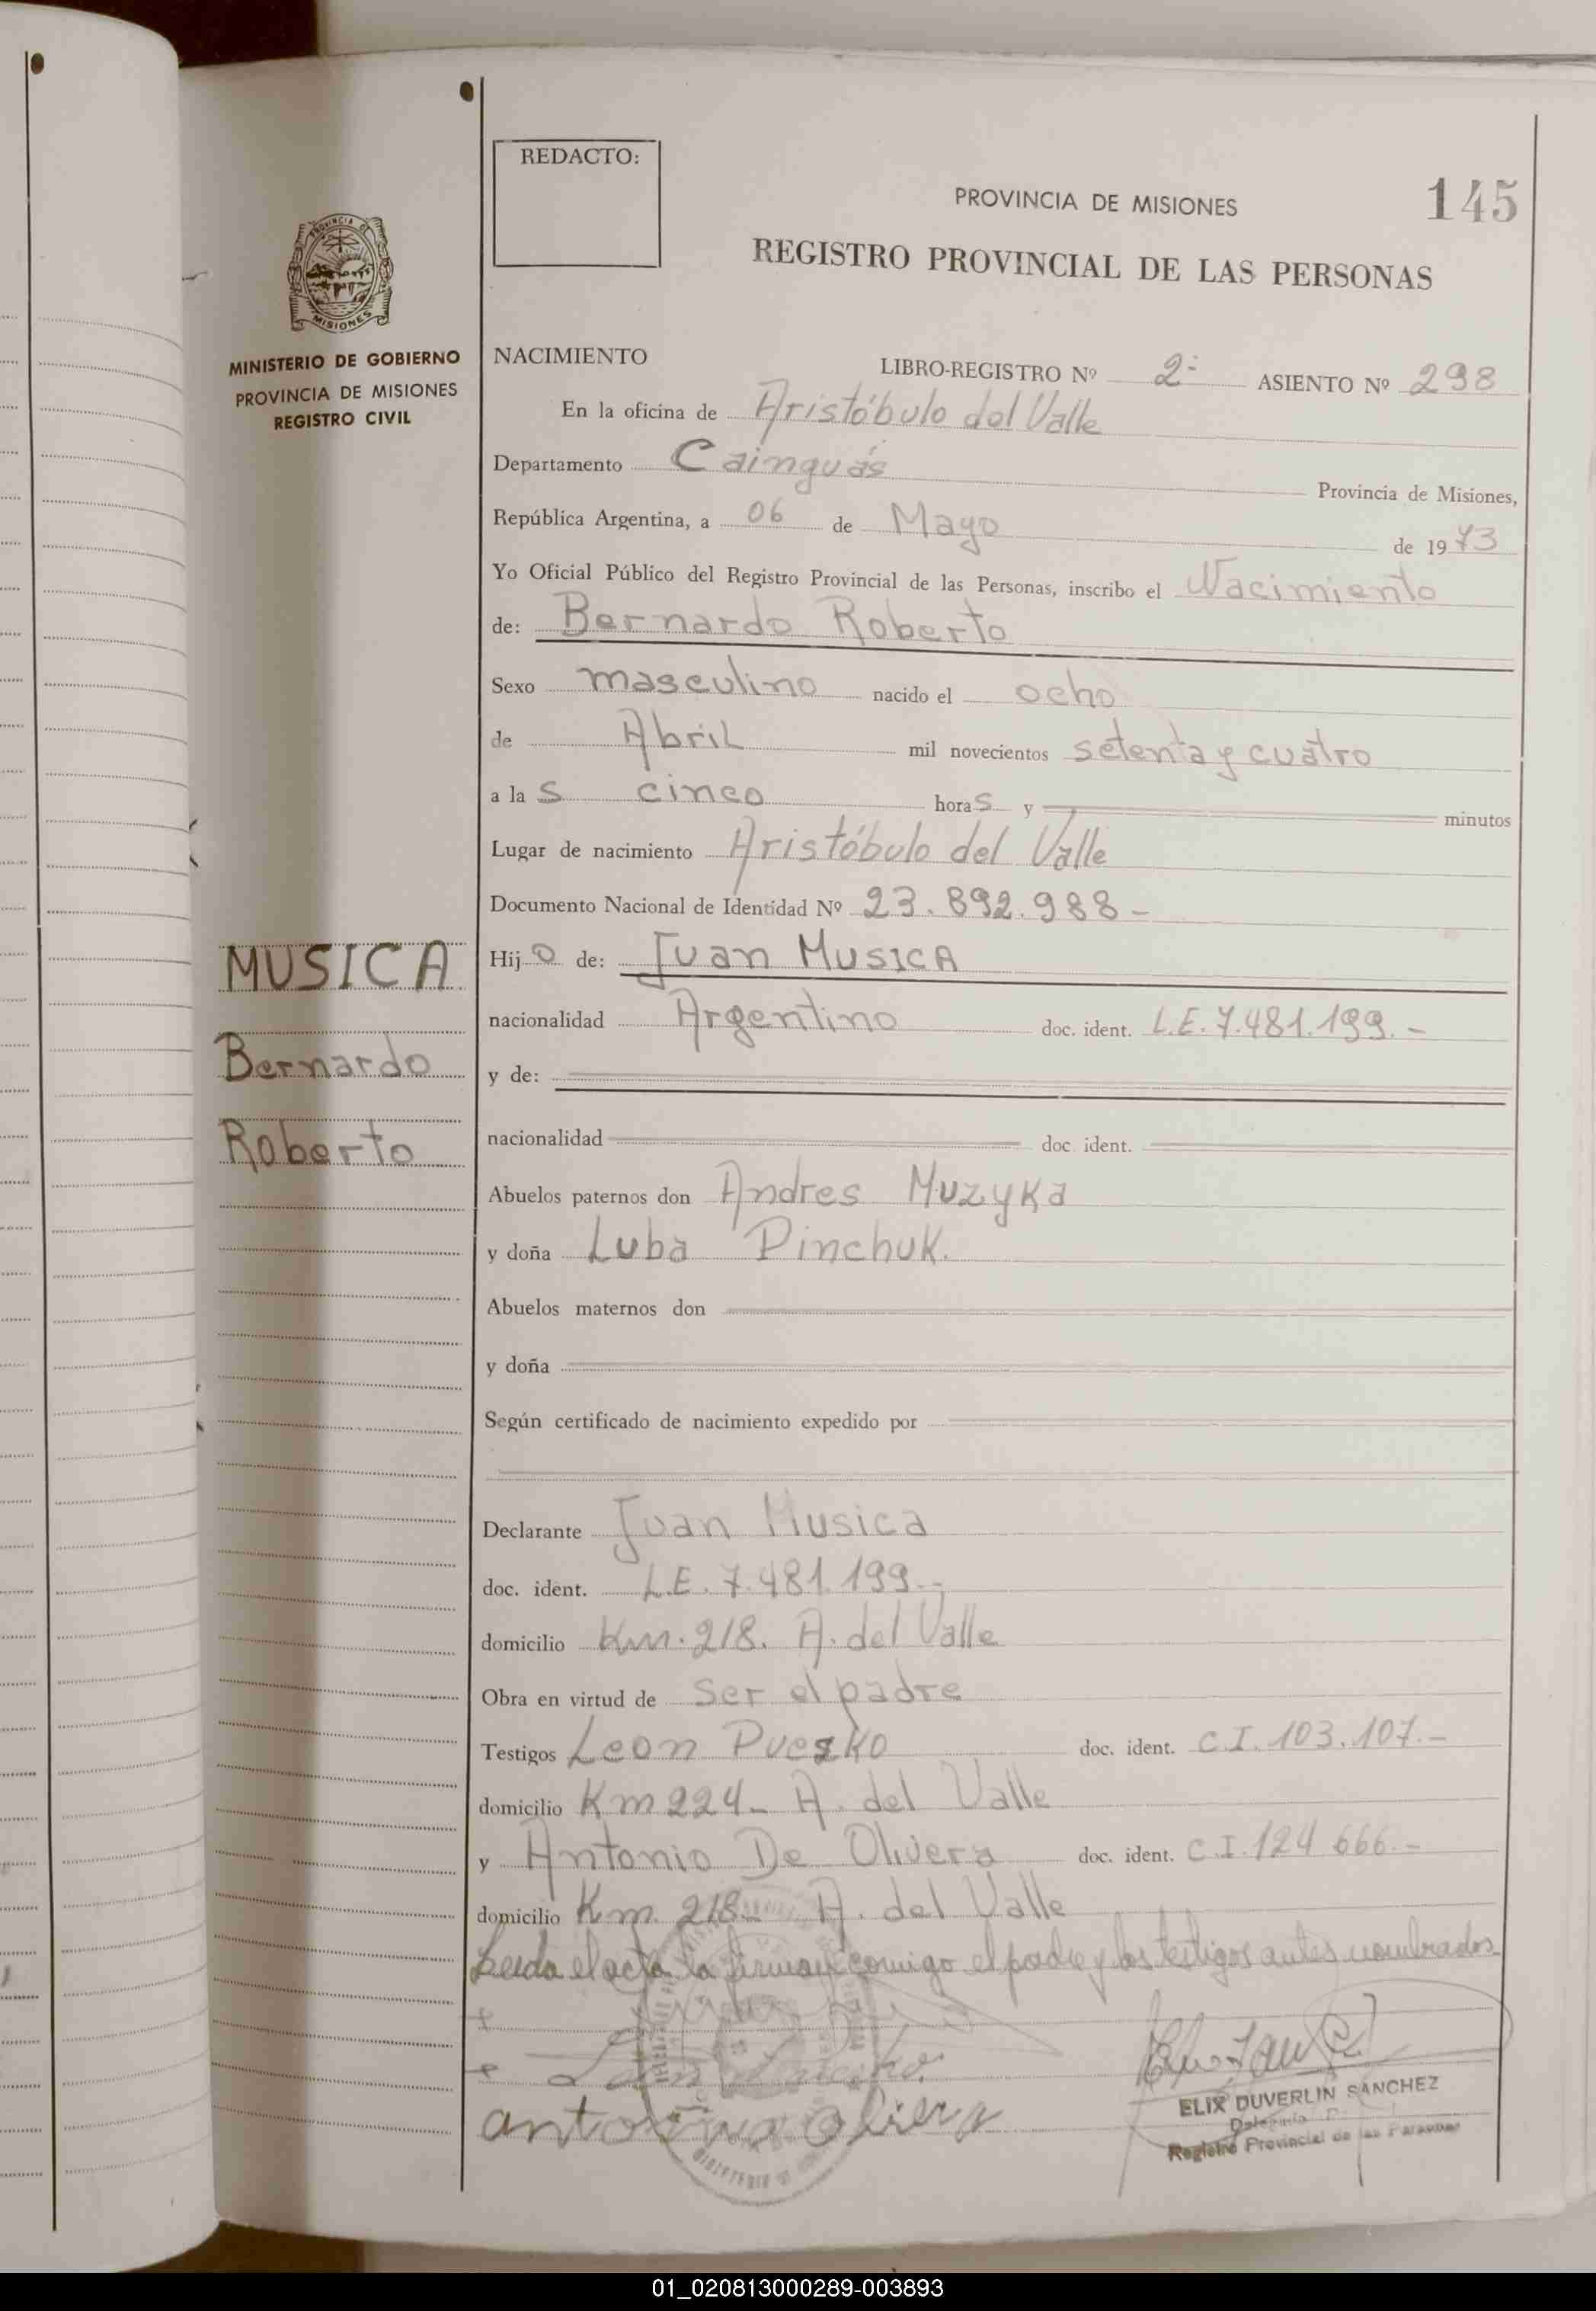 REDACTO:
PROVINCIA DE MISIONES
145
REGISTRO PROVINCIAL DE LAS PERSONAS
PROVINCIA DE
MISIONES
MINISTERIO DE GOBIERNO
PROVINCIA DE MISIONES
REGISTRO CIVIL
NACIMIENTO
LIBRO-REGISTRO Nº 2- ASIENTO Nº 298
En la oficina de Aristóbulo del Valle
Departamento Cainguás Provincia de Misiones,
República Argentina, a 06 de Mayo de 1973
Yo Oficial Público del Registro Provincial de las Personas, inscribo el Nacimiento
de: Bernardo Roberto
Sexo masculino nacido el ocho
de Abril mil novecientos setenta y cuatro
a las cinco horas y minutos
Lugar de nacimiento Aristóbulo del Valle
Documento Nacional de Identidad Nº 23.892.988-
MUSICA
Bernardo
Roberto
Hijo de: Juan MUSICA
nacionalidad Argentino doc. ident. L.E. 7.481.199.-
y de:
nacionalidad doc. ident.
Abuelos paternos don Andres Muzyka
y doña Luba Pinchuk.
Abuelos maternos don
y doña
Según certificado de nacimiento expedido por
Declarante Juan Musica
doc. ident. L.E. 7.481.199.-
domicilio Km. 218. A. del Valle
Obra en virtud de ser el padre
Testigos Leon Pueszko doc. ident. C.I. 103.107.-
domicilio Km 224- A. del Valle
y Antonio De Olivera doc. ident. C.I. 124 666.-
domicilio Km. 218- A. del Valle
Leida el acta la firman comigo el padre y los testigos antes nombrados
ELIX DUVERLIN SANCHEZ
Registro Provincial de las Personas
01_020813000289-003893